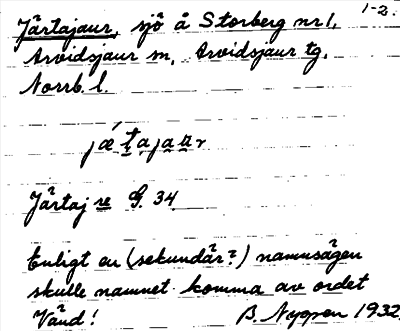 1-2.
Järtajaur, sjö å Storberg nr 1,
Arvidsjaur sn, Arvidsjaur tg,
Norrb. l.
Järtaj re G. 34
Enligt en (sekundär?) namnsägen
skulle namnet komma av ordet
Vänd! B. Nygren 1932